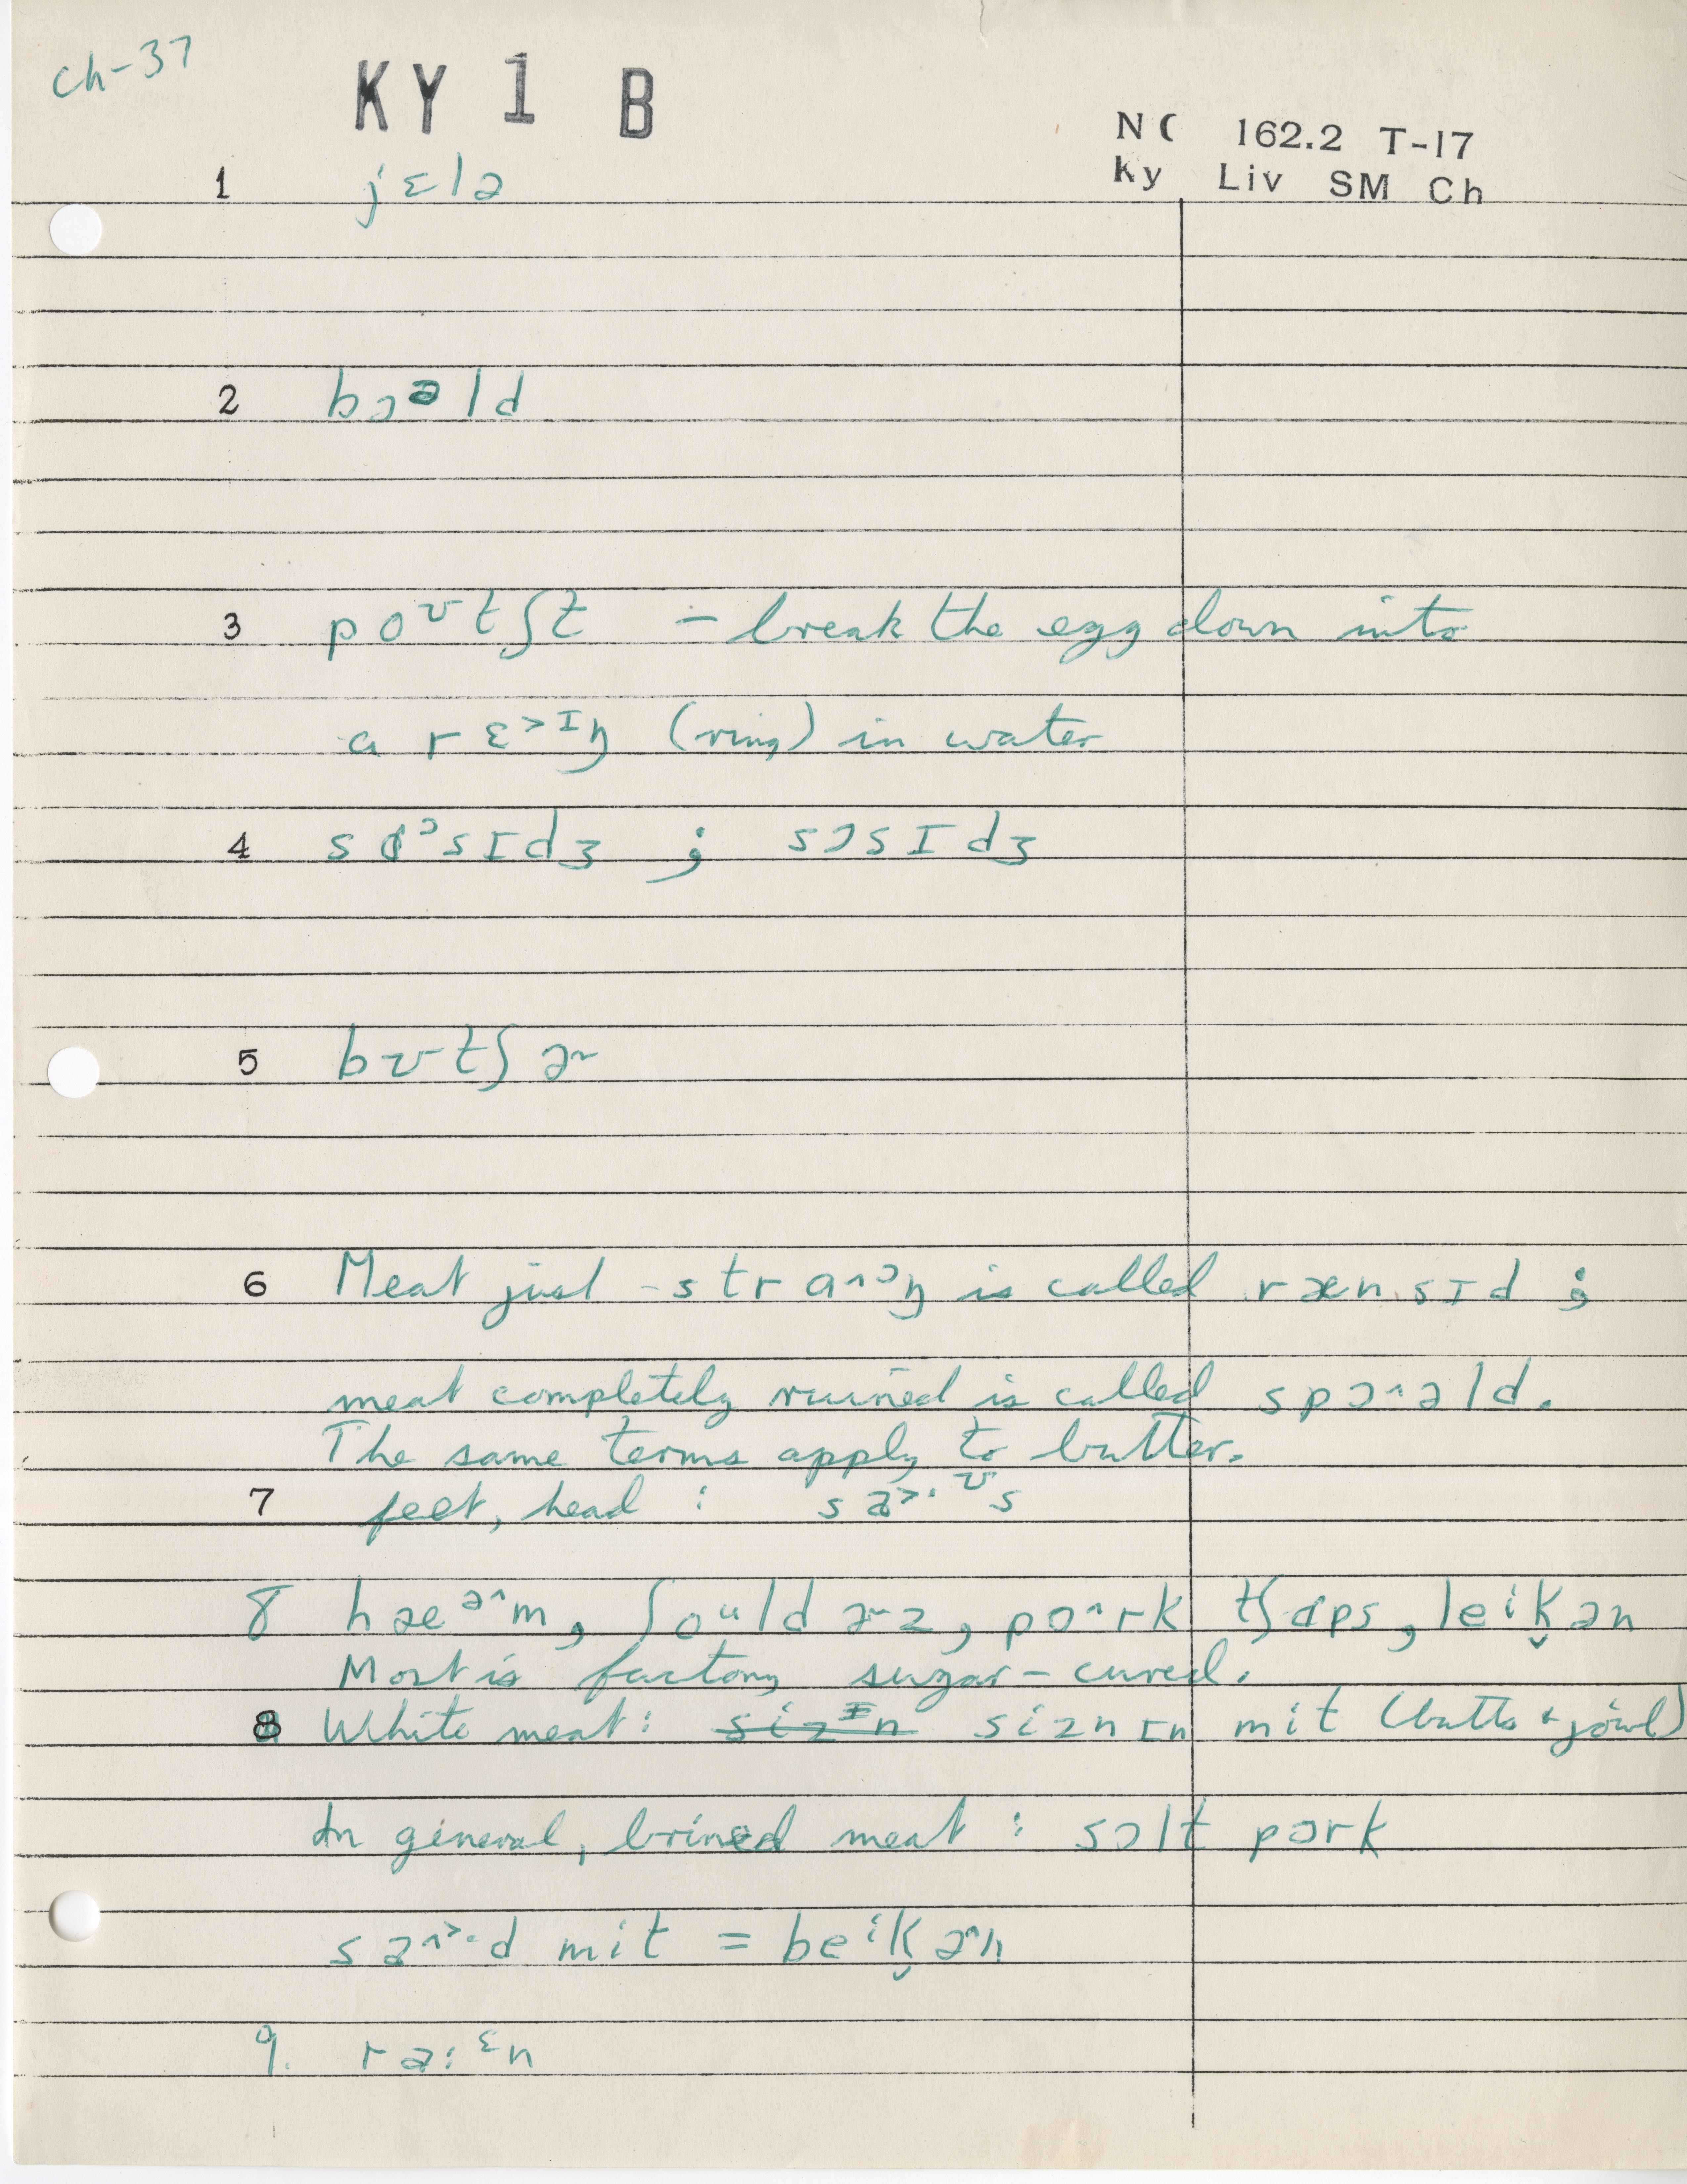 ch-37
KY 1 B
NC 162.2 T-17
Ky Liv SM Ch
1 jɛlə
2 bɔᵊld
3 poᶷtʃt – break the egg down into
a rɛ˃ᴵŋ (ring) in water
4 sɑᵓsɪdʒ ; sɔsɪdʒ
5 bʊtʃɚ
6 Meat just strɑ˄ᵓŋ is called rænsɪd ;
meat completely ruined is called spɔ˄əld.
The same terms apply to butter.
7 feet, head : sa˃·ᶷs
8 hæᵊ˄m, ʃoᵘldɚz, po˄rk tʃɑps, leⁱk̬ən
Most is factory sugar-cured.
8 White meat: siznɪn mit (butts + jowl)
In general, brined meat : sɔlt pɔrk
sa˄˃·d mit = beⁱk̬ə˄n
9. ra:ᵋn